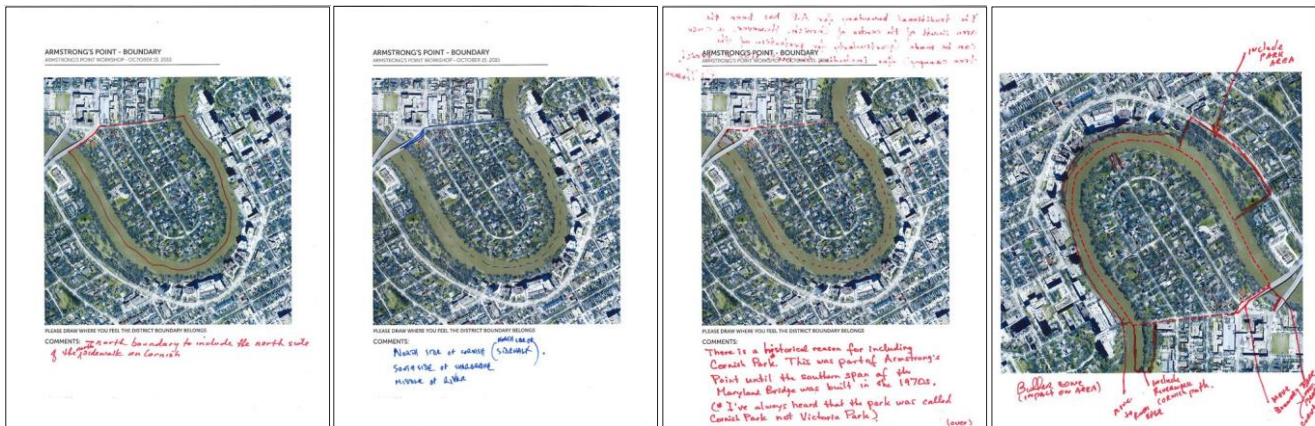 ARMSTRONG'S POINT - BOUNDARY
ARMSTRONG'S POINT WORKSHOP - OCTOBER 15, 2015
PLEASE DRAW WHERE YOU FEEL THE DISTRICT BOUNDARY BELONGS
COMMENTS:
north boundary to include the north side
of the sidewalk on Cornish
ARMSTRONG'S POINT - BOUNDARY
ARMSTRONG'S POINT WORKSHOP - OCTOBER 15, 2015
PLEASE DRAW WHERE YOU FEEL THE DISTRICT BOUNDARY BELONGS
COMMENTS:
NORTH SIDE OF CORNISH
SIDEWALK
SOUTH SIDE OF
MIDDLE OF RIVER
ARMSTRONG'S POINT - BOUNDARY
PLEASE DRAW WHERE YOU FEEL THE DISTRICT BOUNDARY BELONGS
COMMENTS:
There is a historical reason for including
Cornish Park. This was part of Armstrong's
Point until the southern span of the
Maryland Bridge was built in the 1970s.
(* I've always heard that the park was called
Cornish Park not Victoria Park)
(over)
include
PARK
AREA
Buffer zone
(impact on AREA)
include
Cornish path.